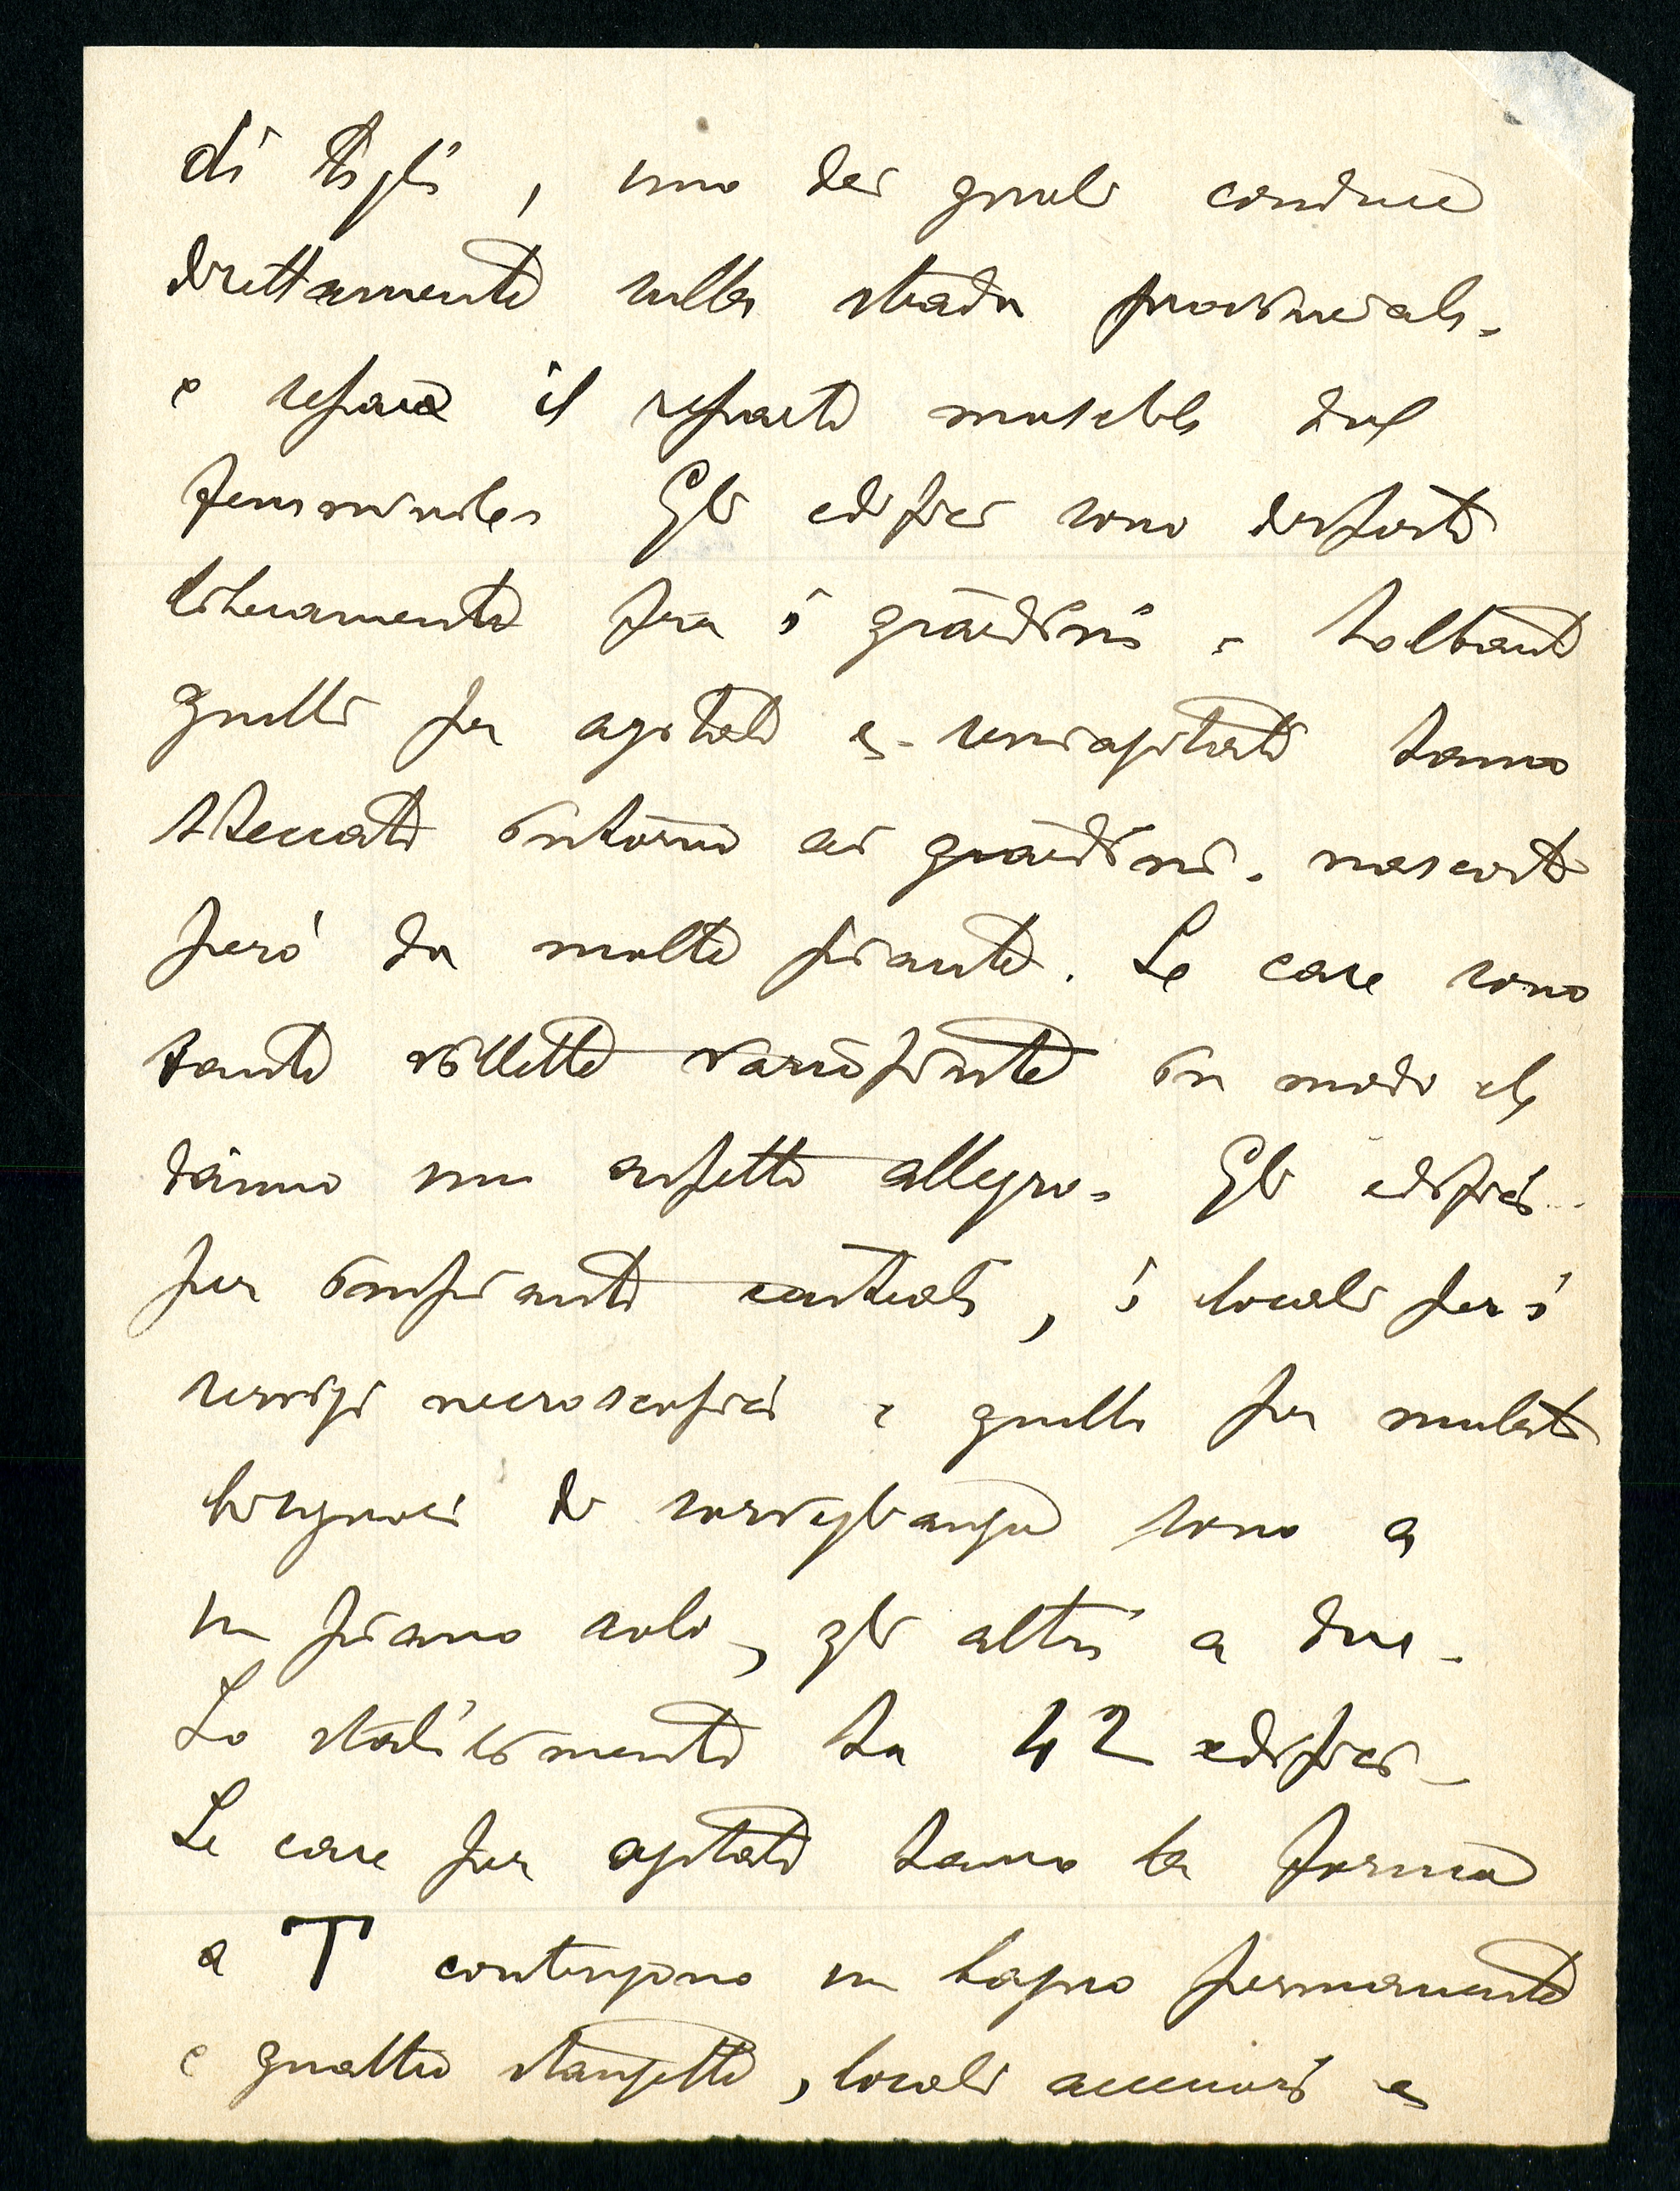 di tigli, uno dei quali conduce
direttamente sulla strada provinciale.
e separa il reparto maschile dal
femminile. Gli edifici sono disposti
liberamente fra i giardini e soltanto
quelli per agitati e semiagitati hanno
steccati intorno ai giardini, nascosti
però da molte piante. Le case sono
tante villette variopinte in modo che
hanno un aspetto allegro. Gli edifici
per impianti centrali, i locali per i
servizi necroscopici e quelli per malati
bisognosi di sorveglianza sono a
un piano solo, gli altri a due.
Lo stabilimento ha 42 edifici.
Le case per agitati hanno la forma
a T contengono un bagno permanente
e quattro stanzette, locali accessori e